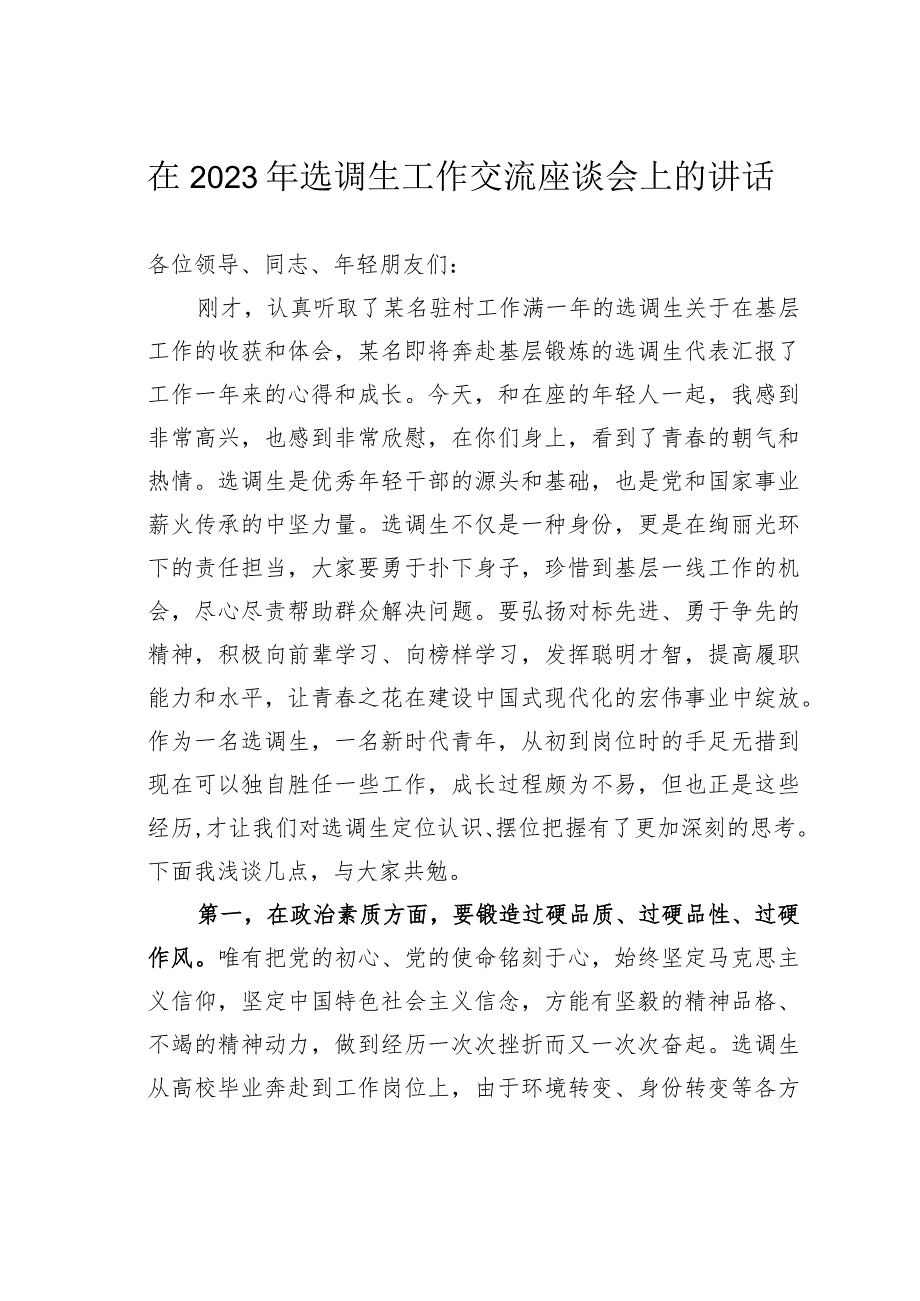 在 2023 年选调生工作交流座谈会上的讲话
各位领导、同志、年轻朋友们：
刚才，认真听取了某名驻村工作满一年的选调生关于在基层
工作的收获和体会，某名即将奔赴基层锻炼的选调生代表汇报了
工作一年来的心得和成长。今天，和在座的年轻人一起，我感到
非常高兴，也感到非常欣慰，在你们身上，看到了青春的朝气和
热情。选调生是优秀年轻干部的源头和基础，也是党和国家事业
薪火传承的中坚力量。选调生不仅是一种身份，更是在绚丽光环
下的责任担当，大家要勇于扑下身子，珍惜到基层一线工作的机
会，尽心尽责帮助群众解决问题。要弘扬对标先进、勇于争先的
精神，积极向前辈学习、向榜样学习，发挥聪明才智，提高履职
能力和水平，让青春之花在建设中国式现代化的宏伟事业中绽放。
作为一名选调生，一名新时代青年，从初到岗位时的手足无措到
现在可以独自胜任一些工作，成长过程颇为不易，但也正是这些
经历,才让我们对选调生定位认识、摆位把握有了更加深刻的思考。
下面我浅谈几点，与大家共勉。
第一，在政治素质方面，要锻造过硬品质、过硬品性、过硬
作风。唯有把党的初心、党的使命铭刻于心，始终坚定马克思主
义信仰，坚定中国特色社会主义信念，方能有坚毅的精神品格、
不竭的精神动力，做到经历一次次挫折而又一次次奋起。选调生
从高校毕业奔赴到工作岗位上，由于环境转变、身份转变等各方